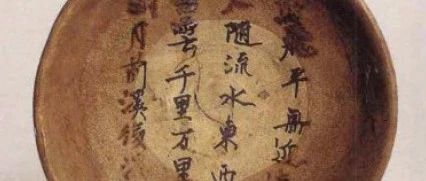 飛平無近
隨流水東西
雲千里万里
月前溪後